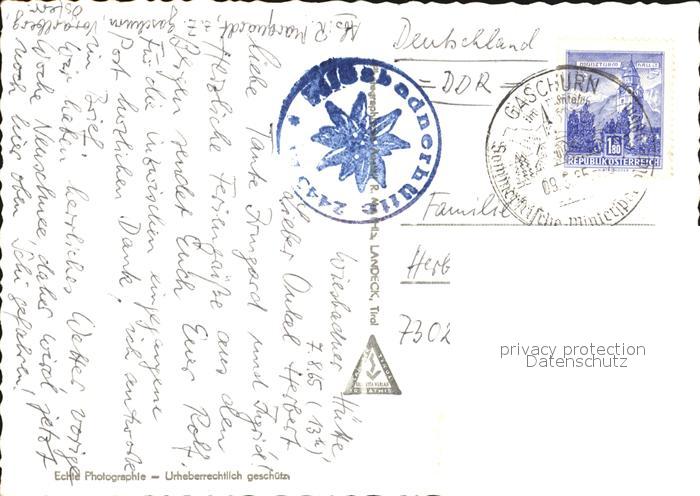 Abs.: R. Marquardt, z. Z.
Gaschurn,
Vorarlberg,
Österr.
Wiesbadner Hütte,
7.8.65 (13h)
Lieber Onkel Herbert
liebe Tante Irmgard und Ingrid!
Herzliche Feriengrüße aus den
Bergen sendet Euch Euer Rolf.
Für die inzwischen eingegangene
Post herzlichen Dank, ich antworte
im Brief.
Wir haben herrliches Wetter. Vorige
Woche Neuschnee, daher wird jetzt
noch hier oben Schi gefahren!
Wiesbadnerhütte 2443
Deutschland
= DDR =
Familie
Herb
7302
GASCHURN
Sommerfrische-Wintersport
MÜNZTURM HALL i.T.
1.80
REPUBLIK ÖSTERREICH
LANDECK, Tirol
Echte Photographie – Urheberrechtlich geschützt
privacy protection
Datenschutz